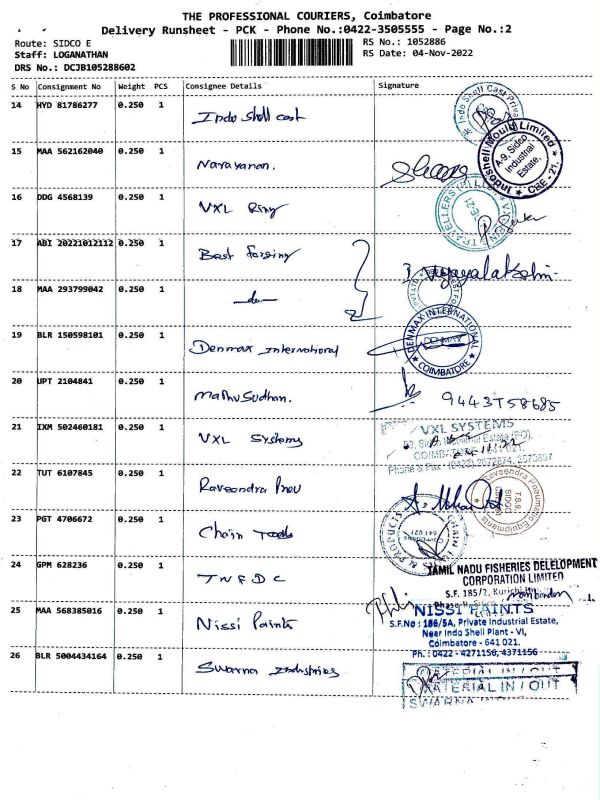 THE PROFESSIONAL COURIERS, Coimbatore
Delivery Runsheet - PCK - Phone No.:0422-3505555 - Page No.:2
Route: SIDCO E
RS No.: 1052886
Staff: LOGANATHAN
RS Date: 04-Nov-2022
DRS No.: DCJB105288602
S No Consignment No Weight PCS Consignee Details Signature
14 HYD 81786277 0.250 1 Indo Shell cast
Indo Shell Cast Priva
Indoshell Mould Limited
A-9, Sidco Industrial Estate,
CBE - 21.
15 MAA 562162040 0.250 1 Narayanan.
16 DDG 4568139 0.250 1 VXL
17 ABI 20221012112 0.250 1 Best forging
Vijayalakshmi
18 MAA 293799042 0.250 1 -do-
19 BLR 150598101 0.250 1 Denmax International
DENMAX INTERNATIONAL
DENMAX
COIMBATORE
20 UPT 2104841 0.250 1 Mathusudhan.
9443758685
21 IXM 502460181 0.250 1 VXL Systems
VXL SYSTEMS
22 TUT 6107845 0.250 1 Raveendra Pneu
Raveendra Pneumatic Equipments
SIDCO
23 PGT 4706672 0.250 1 Chain Tools
641 021
24 GPM 628236 0.250 1 TNFDC
TAMIL NADU FISHERIES DELELOPMENT
CORPORATION LIMITED
S.F. 185/2,
25 MAA 568385016 0.250 1 Nissi Paints
NISSI PAINTS
S.F.No : 186/5A, Private Industrial Estate,
Near Indo Shell Plant - VI,
Coimbatore - 641 021.
Ph. : 0422 - 4271156, 4371156
26 BLR 5004434164 0.250 1 Swarna Industries
MATERIAL IN / OUT
MATERIAL IN / OUT
SWARNA